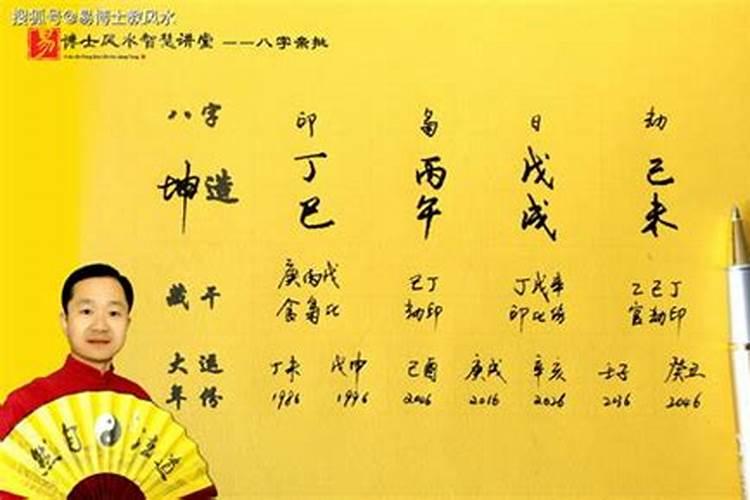 搜狐号@易博士教风水
易 博士风水智慧讲堂 ——八字亲批
八字 印 枭 日 劫
坤造 丁巳 丙午 戊戌 己未
藏干 庚丙戊 己丁 丁戊辛 乙己丁
食枭比 劫印 印比伤 官劫印
大运 丁未 戊申 己酉 庚戌 辛亥 壬子 癸丑
年份 1986 1996 2006 2016 2026 2036 2046
道法自然